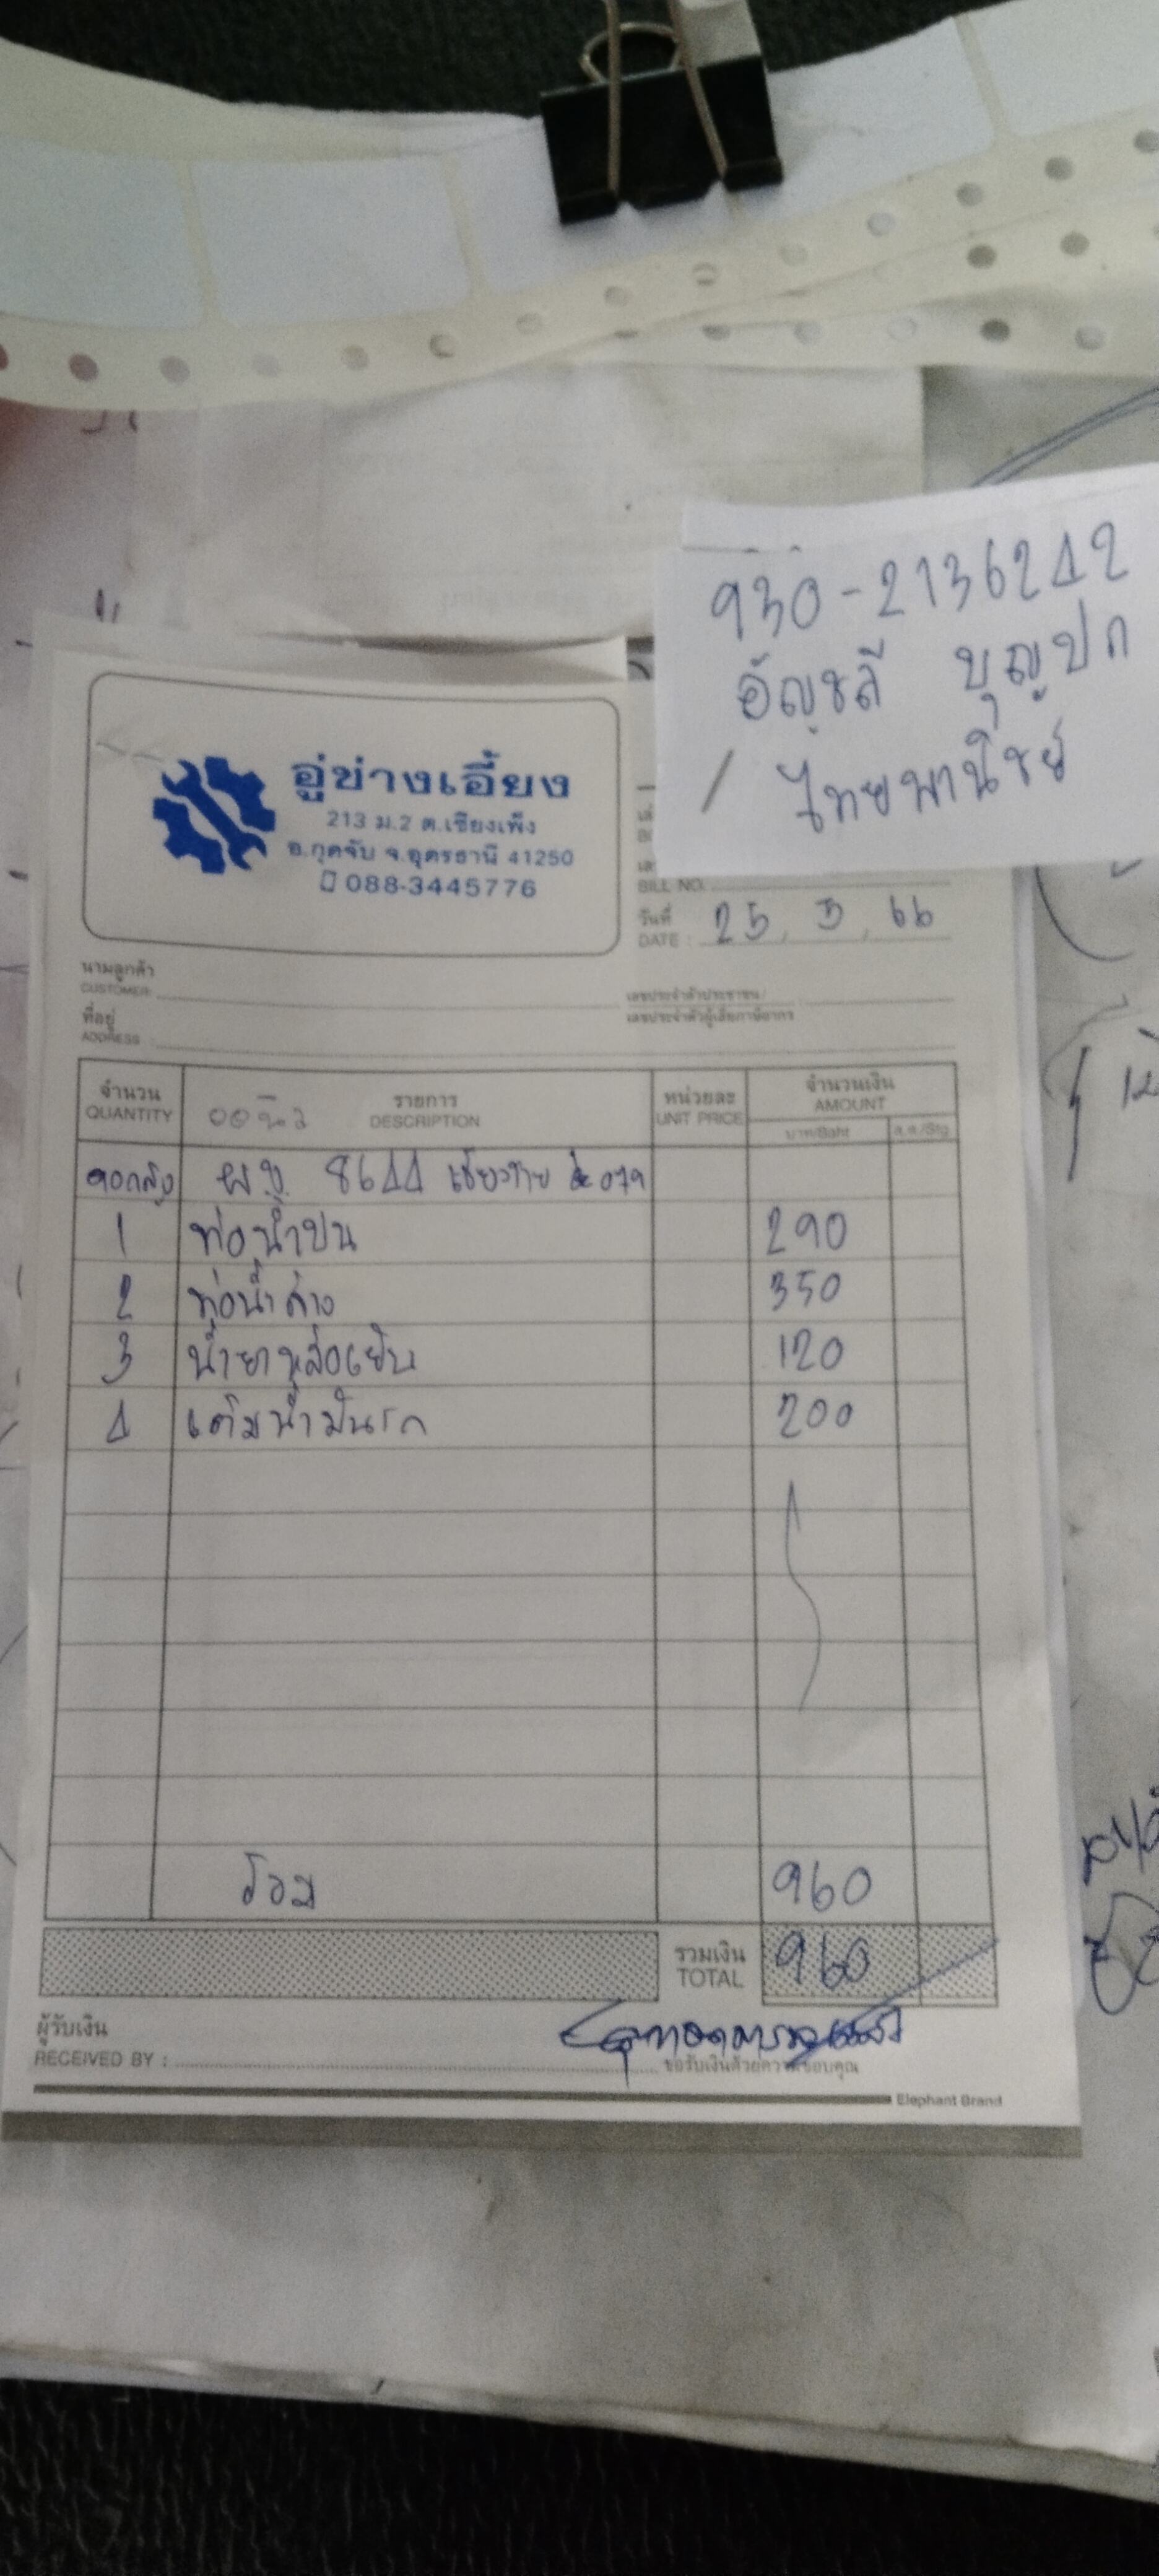 930-2136242
อัญชลี บุญปก
/ ไทยพานิชย์
อู่ช่างเอี้ยง
213 ม.2 ต.เชียงเพ็ง
อ.กุดจับ จ.อุดรธานี 41250
088-3445776
BILL NO.
วันที่ 25, 5, 66
DATE :
นามลูกค้า
CUSTOMER
เลขประจำตัวประชาชน/
ที่อยู่
เลขประจำตัวผู้เสียภาษีอากร
ADDRESS :
จำนวน
QUANTITY
รายการ
DESCRIPTION
หน่วยละ
UNIT PRICE
จำนวนเงิน
AMOUNT
บาท/Baht
ส.ต./Stg.
ผข 8644
1 ท่อน้ำบน 290
2 ท่อน้ำล่าง 350
3 น้ำยาหล่อเย็น 120
4 เติมน้ำมันรถ 200
รวม 960
รวมเงิน 960
TOTAL
ผู้รับเงิน
RECEIVED BY :
ขอรับเงินด้วยความขอบคุณ
Elephant Brand